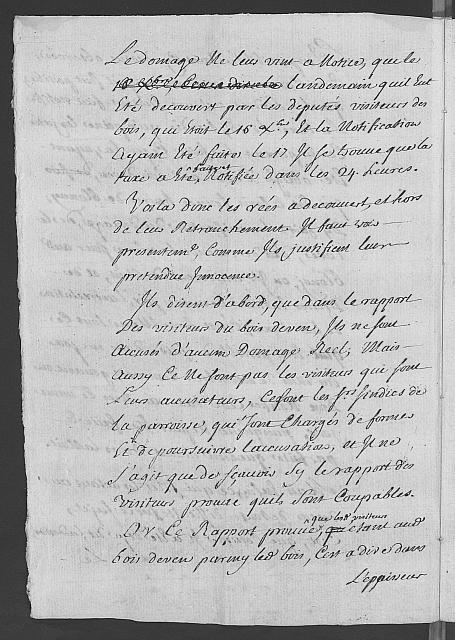 Le domage Ne leur vint a Notice, que le
landemain quil Eut
Eté decouvert par les deputés visiteurs des
bois, qui étoit le 16 Xbre, Et la Notification
ayant Eté faite le 17 Il se trouve que la
taxe a Eté Notifiée dans les 24 heures.
Voila donc les réés a decouvert, et hors
de leur Retrouchement. Il faut voir
presentemt, Comme Ils justifient leur
pretendue Innocence.
Ils disent d'abord, que dans le rapport
Des visiteurs du bois deven, Ils ne sont
accusés d'aucun Domage Réel; Mais
aussy Ce Ne sont pas les visiteurs qui sont
Leurs accusateurs, Ce sont les srs sindics de
la parroisse, qui sont Chargés de former
Et de poursuivre lacusation, et Il ne
s'agit que de sçavoir sy le rapport des
visiteurs prouve quils sont Coupables.
Or Ce Rapport prouve, que lesd visiteurs etant aud
bois deven parmy led bois, C'est a dire dans
L'eppaisseur